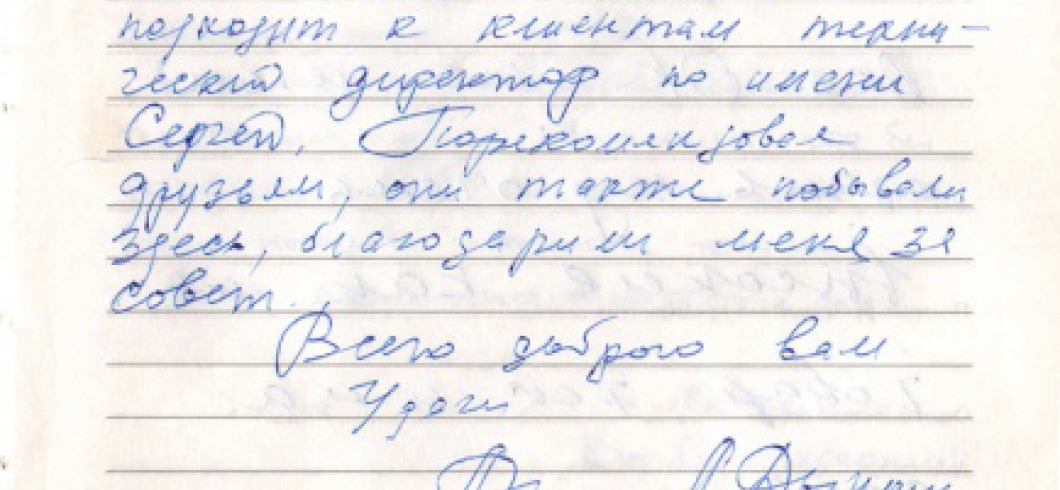 подходит к клиентам техни-
ческий директор по имени
Сергей. Порекомендовал
друзьям, они также побывали
здесь, благодарили меня за
совет.
Всего доброго вам
Удачи